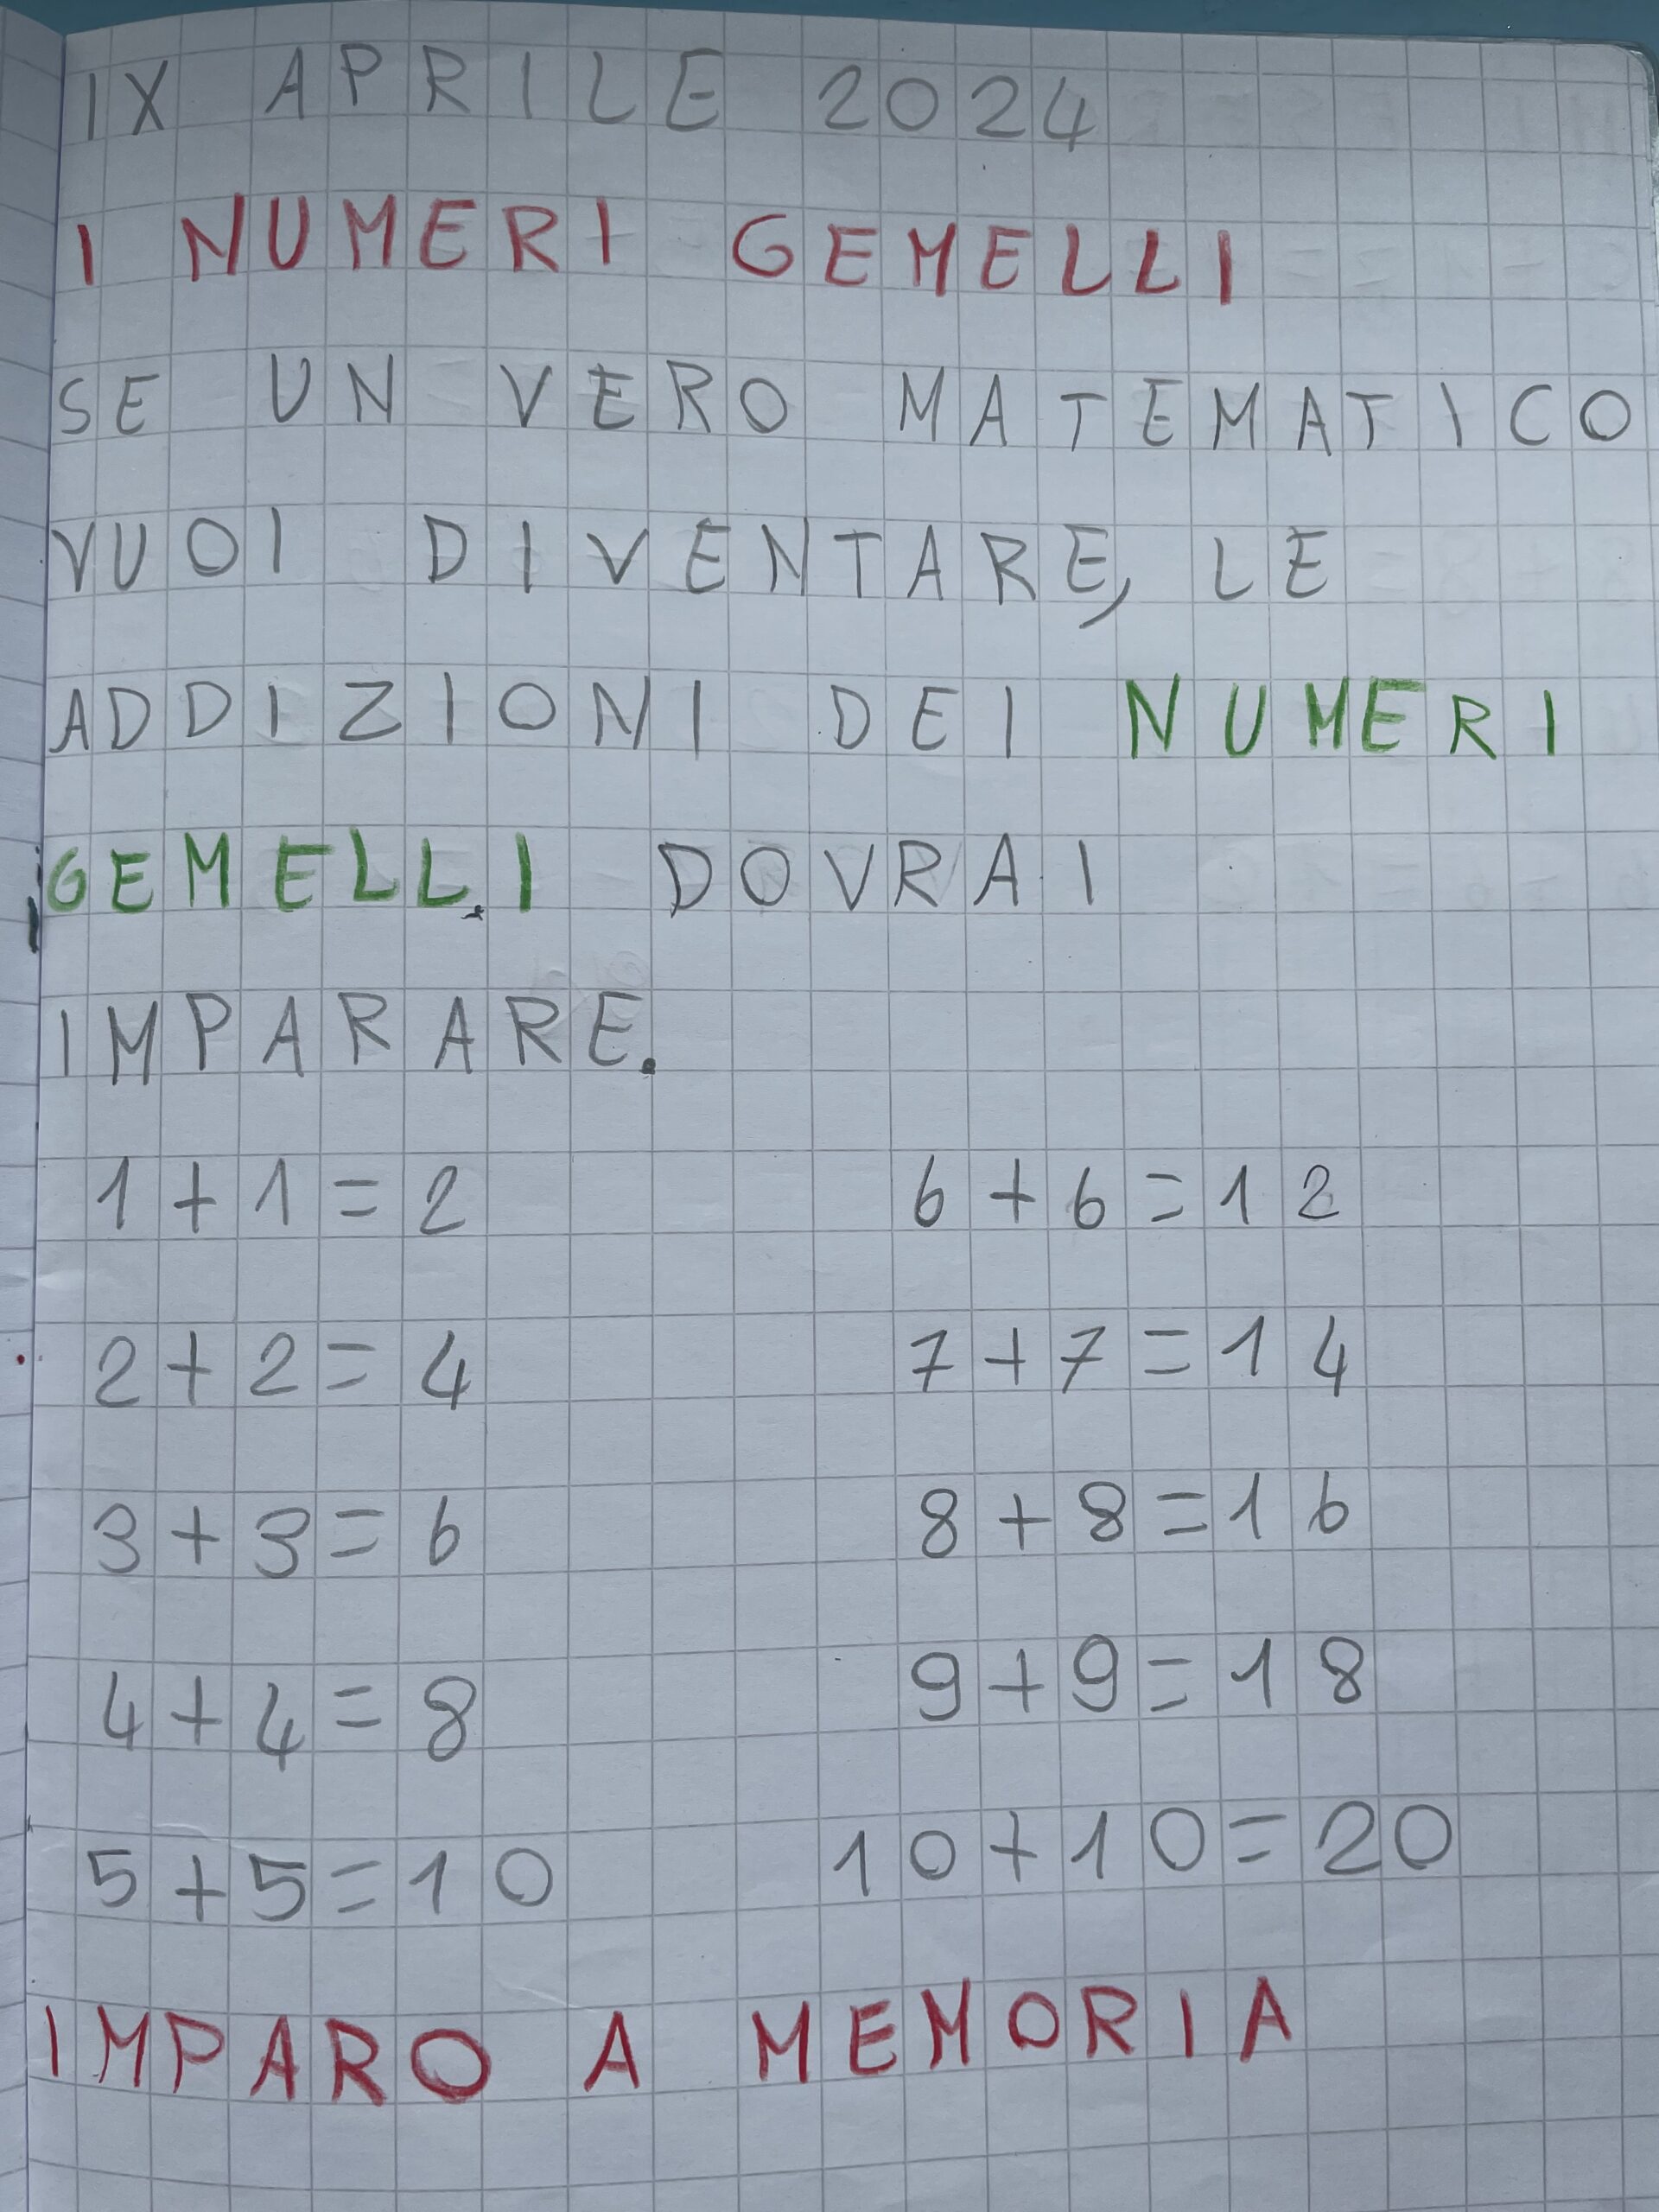 IX APRILE 2024
I NUMERI GEMELLI
SE UN VERO MATEMATICO
VUOI DIVENTARE, LE
ADDIZIONI DEI NUMERI
GEMELLI DOVRAI
IMPARARE.
1+1=2 6+6=12
2+2=4 7+7=14
3+3=6 8+8=16
4+4=8 9+9=18
5+5=10 10+10=20
IMPARO A MEMORIA